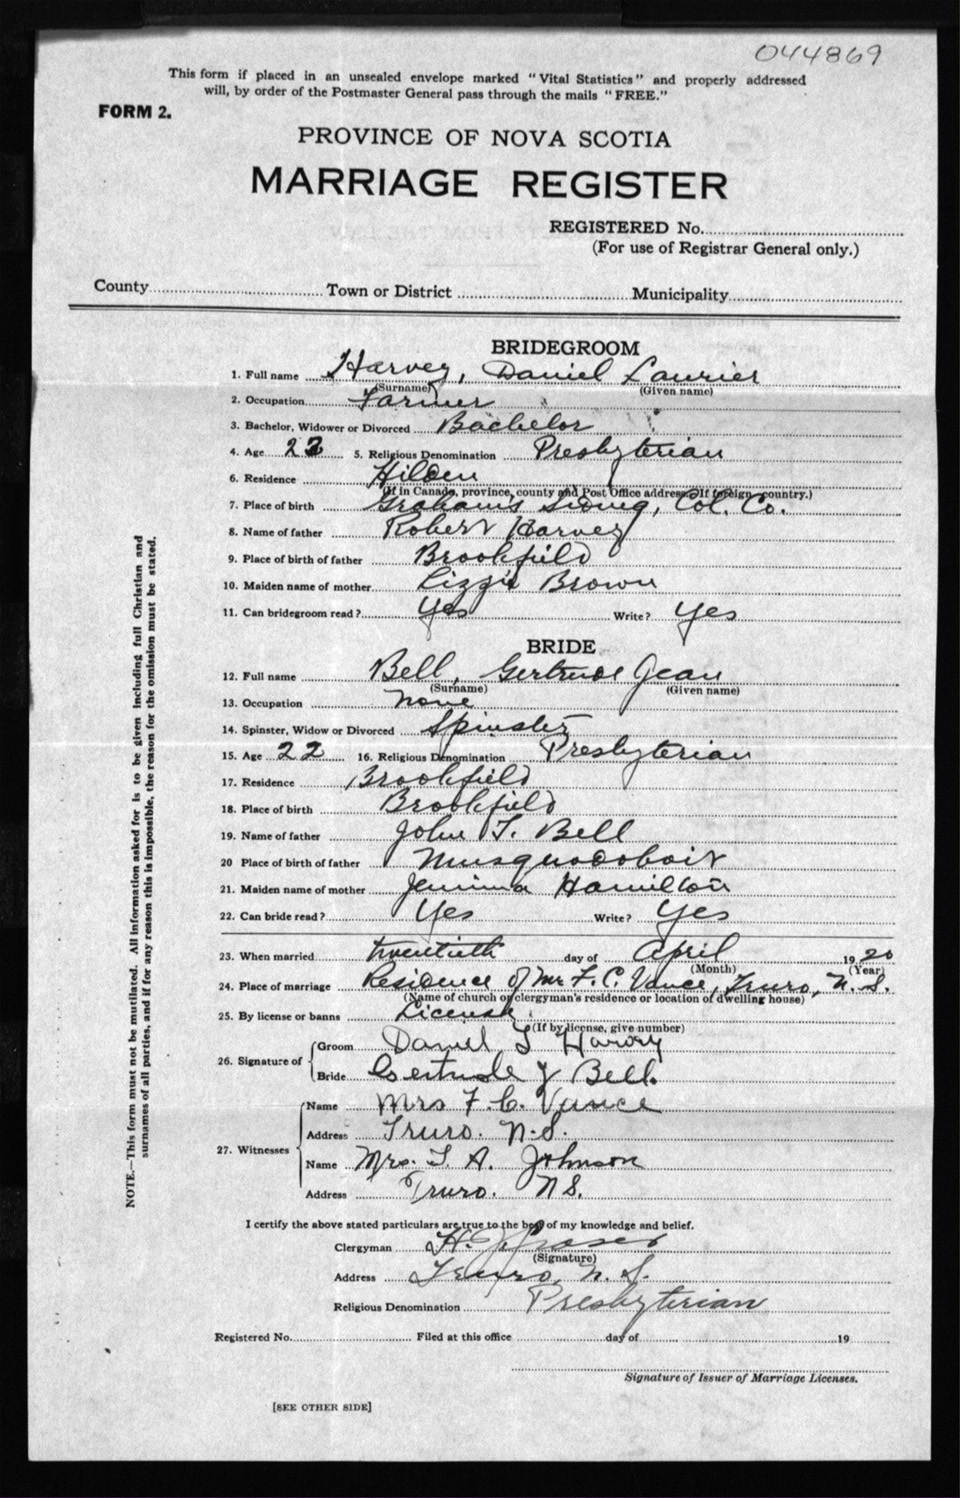 044869
This form if placed in an unsealed envelope marked "Vital Statistics" and properly addressed
will, by order of the Postmaster General pass through the mails "FREE."
FORM 2.
PROVINCE OF NOVA SCOTIA
MARRIAGE REGISTER
REGISTERED No.
(For use of Registrar General only.)
County Town or District Municipality
BRIDEGROOM
1. Full name Harvey, Daniel Laurier
(Surname) (Given name)
2. Occupation Farmer
3. Bachelor, Widower or Divorced Bachelor
4. Age 5. Religious Denomination Presbyterian
6. Residence Hilden
(If in Canada, province, county and Post Office address. If foreign country.)
7. Place of birth Grahams Siding, Col. Co.
8. Name of father Robert Harvey
9. Place of birth of father Brookfield
10. Maiden name of mother Lizzie Brown
11. Can bridegroom read? Yes Write? Yes
BRIDE
12. Full name Bell, Gertrude Jean
(Surname) (Given name)
13. Occupation None
14. Spinster, Widow or Divorced Spinster
15. Age 22 16. Religious Denomination Presbyterian
17. Residence Brookfield
18. Place of birth Brookfield
19. Name of father John T. Bell
20 Place of birth of father Musquodoboit
21. Maiden name of mother Jemima Hamilton
22. Can bride read? Yes Write? Yes
23. When married twentieth day of April 1920
(Month) (Year)
24. Place of marriage Residence of Mr F. C. Vance, Truro, N. S.
(Name of church or clergyman's residence or location of dwelling house)
25. By license or banns License
(If by license, give number)
26. Signature of Groom Daniel L Harvey
Bride Gertrude J Bell.
27. Witnesses Name Mrs F. C. Vance
Address Truro. N.S.
Name Mrs. T. A. Johnson
Address Truro. N S.
I certify the above stated particulars are true to the best of my knowledge and belief.
Clergyman H. J. Fraser
(Signature)
Address Truro, N. S.
Religious Denomination Presbyterian
Registered No. Filed at this office day of 19
Signature of Issuer of Marriage Licenses.
[SEE OTHER SIDE]
NOTE.—This form must not be mutilated. All information asked for is to be given including full Christian and
surnames of all parties, and if for any reason this is impossible, the reason for the omission must be stated.